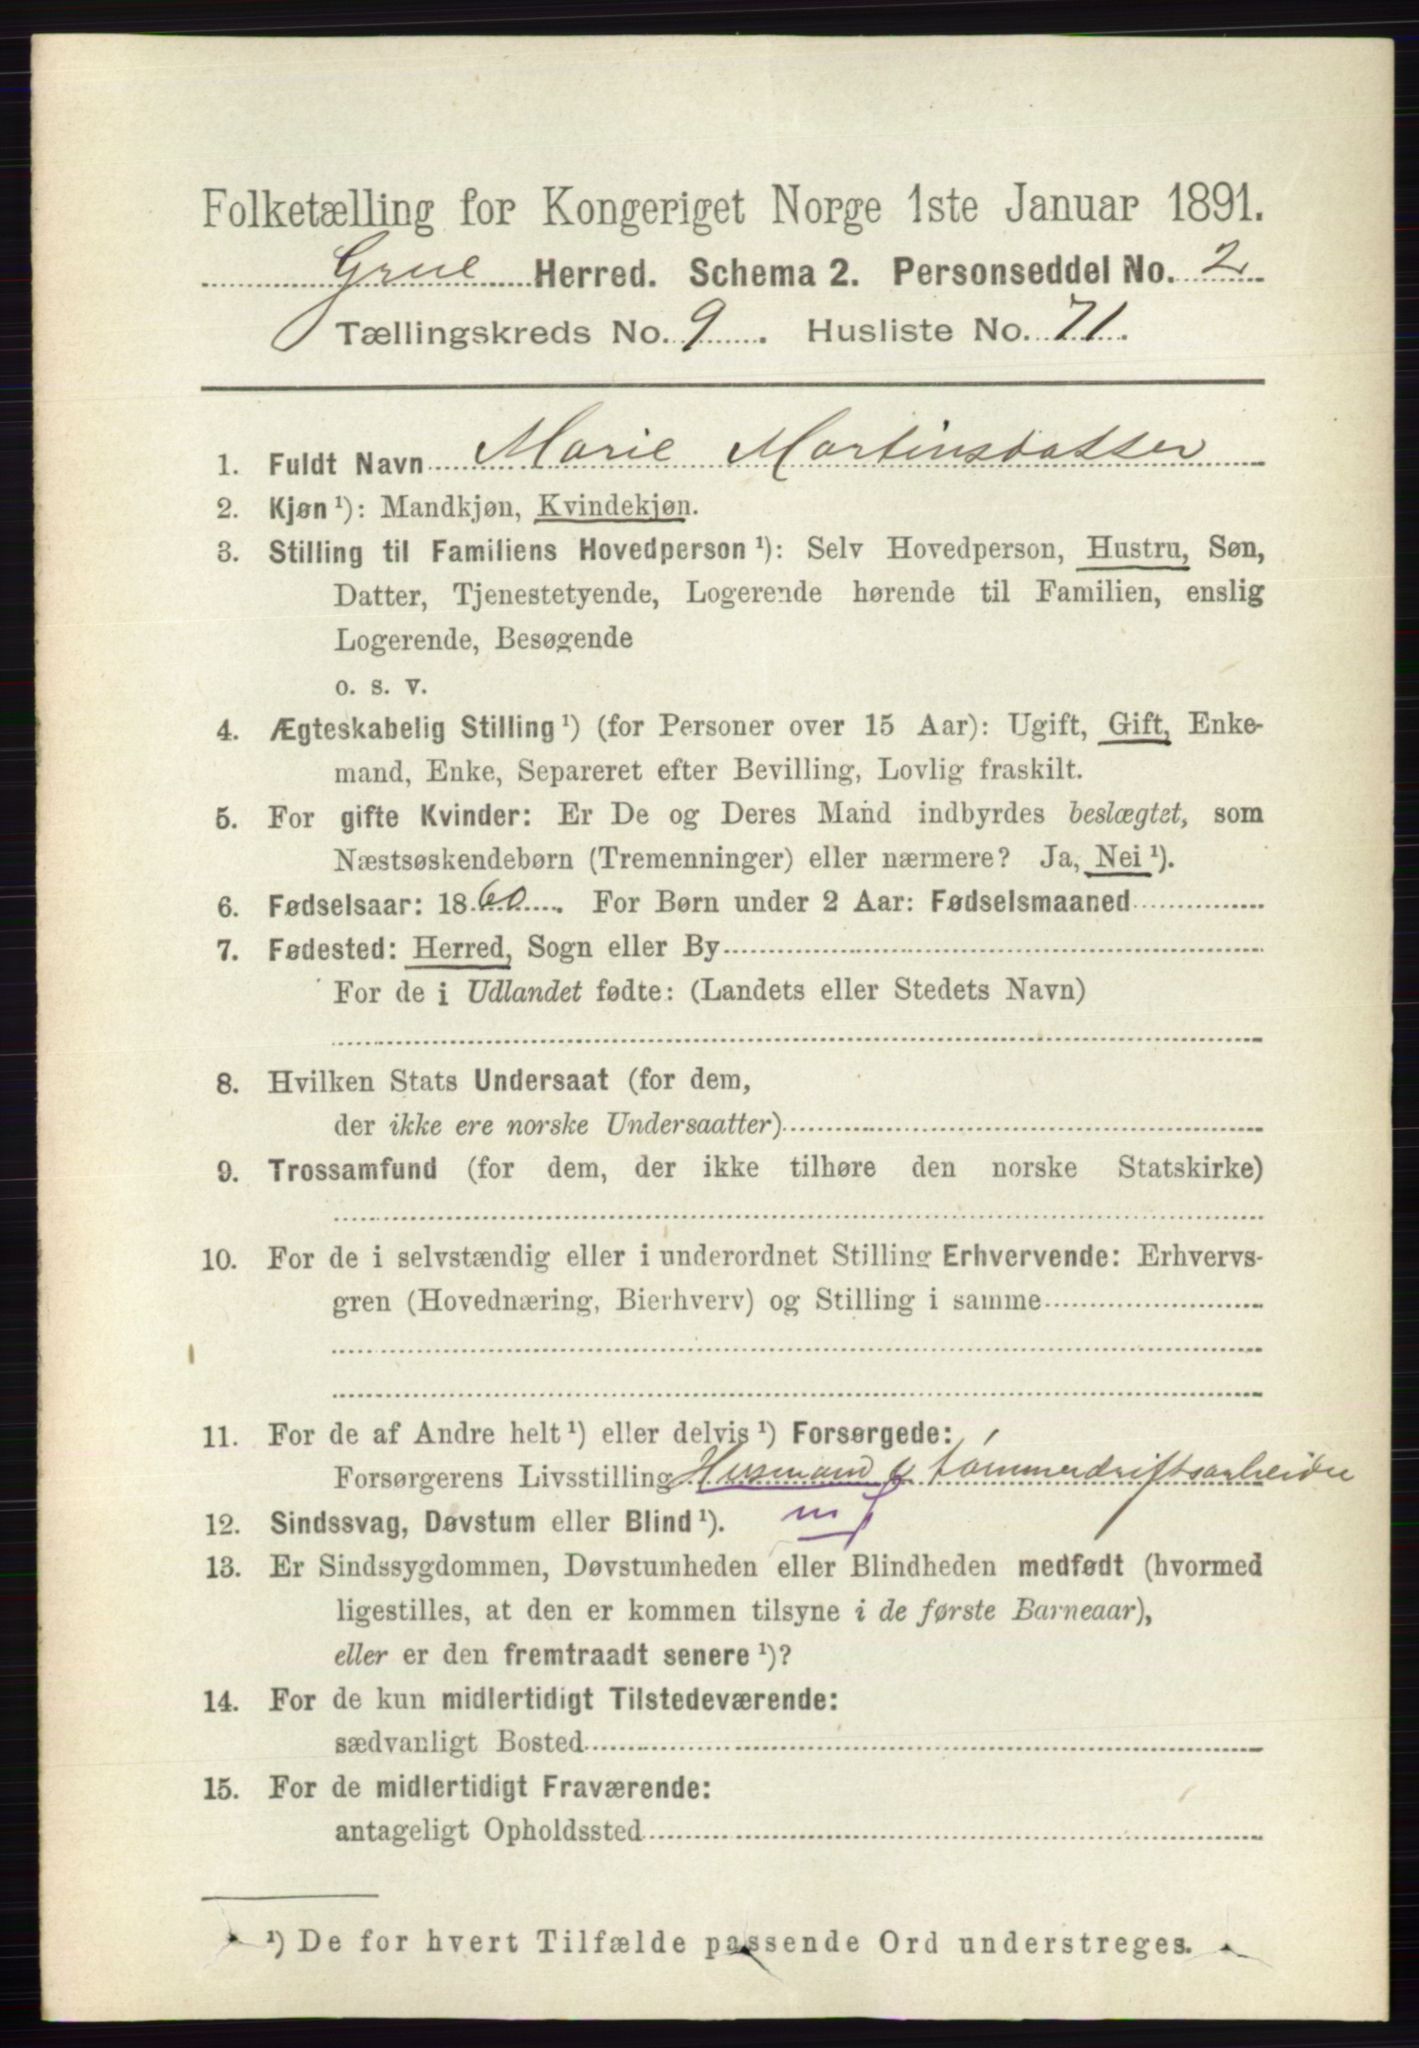 Folketælling for Kongeriget Norge 1ste Januar 1891.
Grue Herred. Schema 2. Personseddel No. 2
Tællingskreds No. 9. Husliste No. 71.
1. Fuldt Navn Marie Martinsdatter
2. Kjøn ¹): Mandkjøn, Kvindekjøn.
3. Stilling til Familiens Hovedperson ¹): Selv Hovedperson, Hustru, Søn,
Datter, Tjenestetyende, Logerende hørende til Familien, enslig
Logerende, Besøgende
o. s. v.
4. Ægteskabelig Stilling ¹) (for Personer over 15 Aar): Ugift, Gift, Enke-
mand, Enke, Separeret efter Bevilling, Lovlig fraskilt.
5. For gifte Kvinder: Er De og Deres Mand indbyrdes beslægtet, som
Næstsøskendebørn (Tremenninger) eller nærmere? Ja, Nei ¹).
6. Fødselsaar: 1860. For Børn under 2 Aar: Fødselsmaaned
7. Fødested: Herred, Sogn eller By
For de i Udlandet fødte: (Landets eller Stedets Navn)
8. Hvilken Stats Undersaat (for dem,
der ikke ere norske Undersaatter)
9. Trossamfund (for dem, der ikke tilhøre den norske Statskirke)
10. For de i selvstændig eller i underordnet Stilling Erhvervende: Erhvervs-
gren (Hovednæring, Bierhverv) og Stilling i samme
11. For de af Andre helt ¹) eller delvis ¹) Forsørgede:
Forsørgerens Livsstilling Husmand & tømmerdriftsarbeider
12. Sindssvag, Døvstum eller Blind ¹).
13. Er Sindssygdommen, Døvstumheden eller Blindheden medfødt (hvormed
ligestilles, at den er kommen tilsyne i de første Barneaar),
eller er den fremtraadt senere ¹)?
14. For de kun midlertidigt Tilstedeværende:
sædvanligt Bosted
15. For de midlertidigt Fraværende:
antageligt Opholdssted
¹) De for hvert Tilfælde passende Ord understreges.